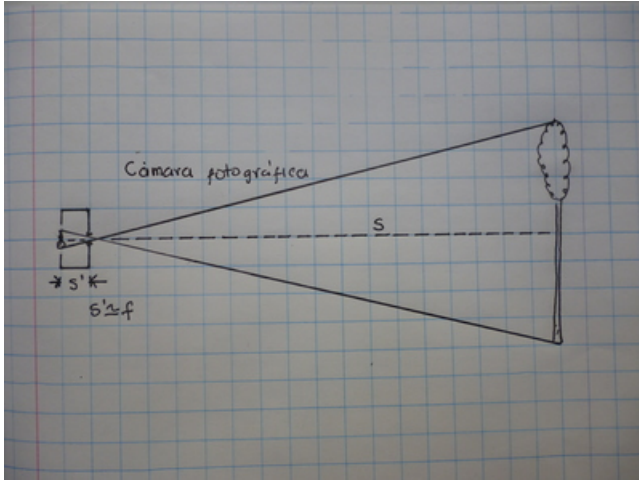 Cámara fotográfica
s
s'
s'≃f